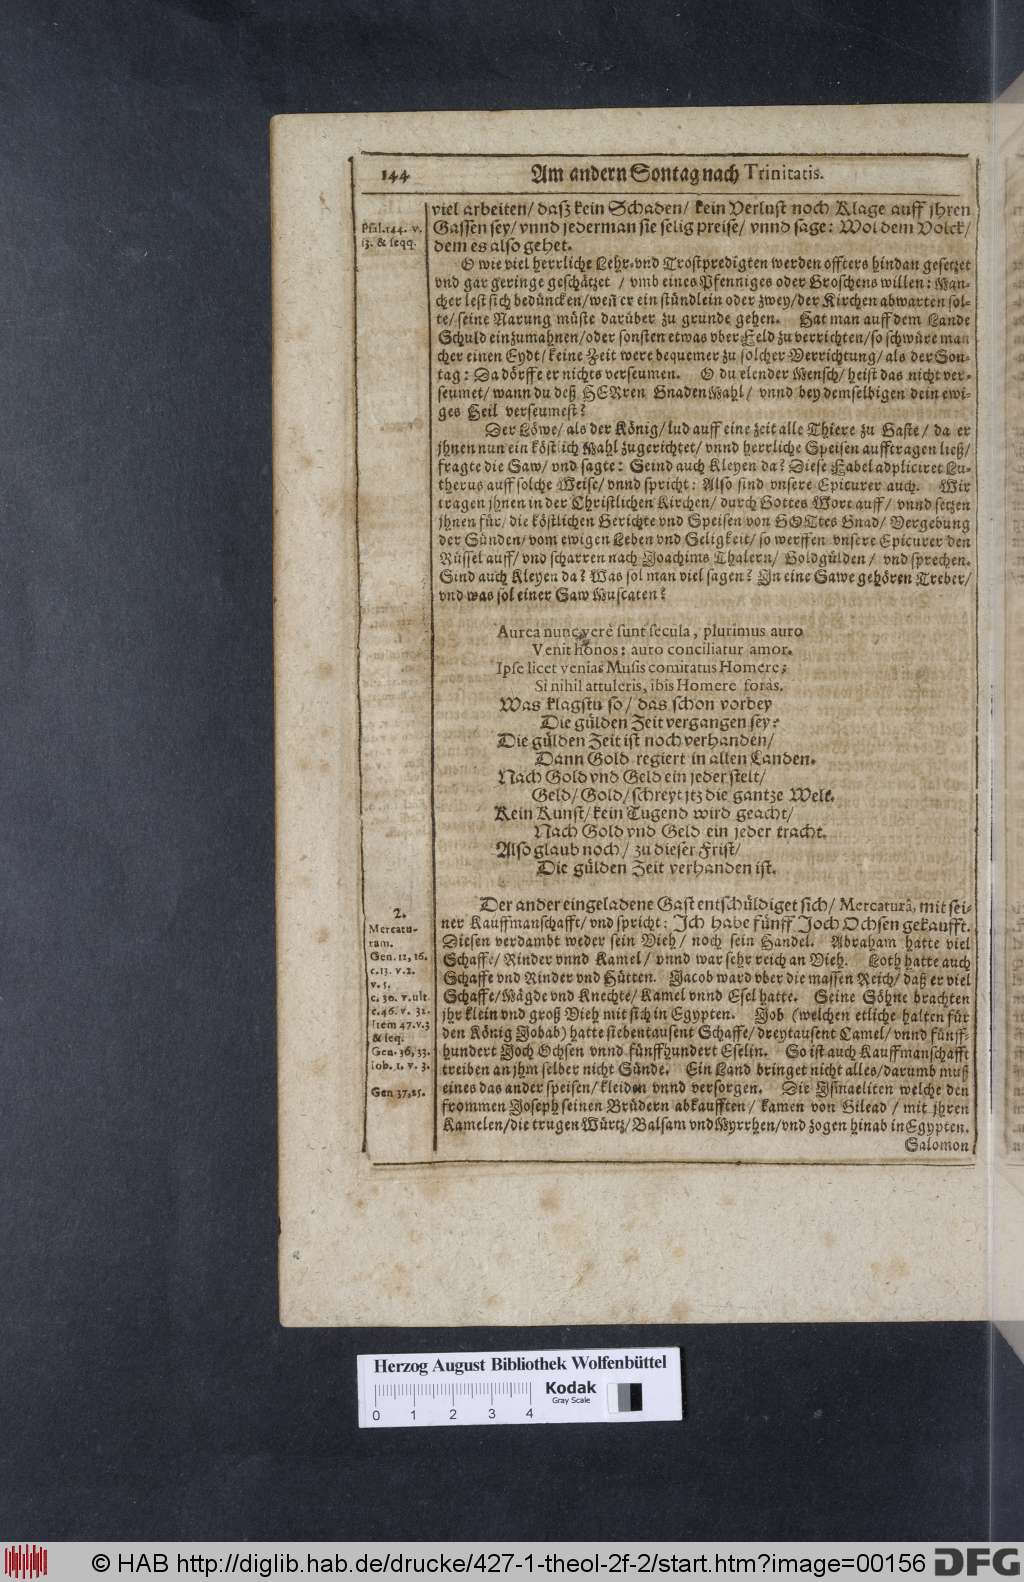 144
Am andern Sontag nach Trinitatis.
viel arbeiten/ dasz kein Schaden/ kein Verlust noch Klage auff jhren
Gassen sey/ vnnd jederman sie selig preise/ vnnd sage: Wol dem Volck/
dem es also gehet.
Psal. 144. v.
13. & seqq.
O wie viel herrliche Lehr- vnd Trostpredigten werden offters hindan gesetzet
vnd gar geringe geschätzet / vmb eines Pfenniges oder Groschens willen: Man-
cher lest sich bedüncken/ weñ er ein stündlein oder zwey/ der Kirchen abwarten sol-
te/ seine Narung müste darüber zu grunde gehen. Hat man auff dem Lande
Schuld einzumahnen/ oder sonsten etwas vber Feld zu verrichten/ so schwüre man
cher einen Eydt/ keine Zeit were bequemer zu solcher Verrichtung/ als der Son-
tag: Da dörffe er nichts verseumen. O du elender Mensch/ heist das nicht ver-
seumet/ wann du deß HERren GnadenMahl/ vnnd bey demselbigen dein ewi-
ges Heil verseumest?
Der Löwe/ als der König/ lud auff eine zeit alle Thiere zu Gaste/ da er
jhnen nun ein köstlich Mahl zugerichtet/ vnnd herrliche Speisen aufftragen ließ/
fragte die Saw/ vnd sagte: Seind auch Kleyen da? Diese Fabel adpliciret Lu-
therus auff solche Weise/ vnnd spricht: Also sind vnsere Epicurer auch. Wir
tragen jhnen in der Christlichen Kirchen/ durch Gottes Wort auff/ vnnd setzen
jhnen für/ die köstlichen Gerichte vnd Speisen von GOTtes Gnad/ Vergebung
der Sünden/ vom ewigen Leben vnd Seligkeit/ so werffen vnsere Epicurer den
Rüssel auff/ vnd scharren nach Joachims Thalern/ Goldgülden/ vnd sprechen.
Sind auch Kleyen da? Was sol man viel sagen? In eine Sawe gehören Treber/
vnd was sol einer Saw Muscaten?
Aurea nunc verè sunt secula, plurimus auro
Venit honos: auro conciliatur amor.
Ipse licet venias Musis comitatus Homere;
Si nihil attuleris, ibis Homere foràs.
Was klagstu so/ das schon vorbey
Die gülden Zeit vergangen sey?
Die gülden Zeit ist noch verhanden/
Dann Gold regiert in allen Landen.
Nach Gold vnd Geld ein jeder stelt/
Geld/ Gold/ schreyt jtz die gantze Welt.
Kein Kunst/ kein Tugend wird geacht/
Nach Gold vnd Geld ein jeder tracht.
Also glaub noch/ zu dieser Frist/
Die gülden Zeit verhanden ist.
Der ander eingeladene Gast entschüldiget sich/ Mercaturâ, mit sei-
ner Kauffmanschafft/ vnd spricht: Ich habe fünff Joch Ochsen gekaufft.
Diesen verdambt weder sein Vieh/ noch sein Handel. Abraham hatte viel
Schaffe/ Rinder vnnd Kamel/ vnnd war sehr reich an Vieh. Loth hatte auch
Schaffe vnd Rinder vnd Hütten. Jacob ward vber die massen Reich/ daß er viel
Schaffe/ Mägde vnd Knechte/ Kamel vnnd Esel hatte. Seine Söhne brachten
jhr klein vnd groß Vieh mit sich in Egypten. Job (welchen etliche halten für
den König Jobab) hatte siebentausent Schaffe/ dreytausent Camel/ vnnd fünff-
hundert Joch Ochsen vnnd fünffhundert Eselin. So ist auch Kauffmanschafft
treiben an jhm selber nicht Sünde. Ein Land bringet nicht alles/ darumb muß
eines das ander speisen/ kleiden vnnd versorgen. Die Ismaeliten welche den
frommen Joseph seinen Brüdern abkaufften/ kamen von Gilead/ mit jhren
Kamelen/ die trugen Würtz/ Balsam vnd Myrrhen/ vnd zogen hinab in Egypten.
Salomon
2.
Mercatu-
ram.
Gen. 12, 16.
c. 13. v. 2.
v. 5.
c. 30. v. ult.
c. 46. v. 32.
Item 47. v. 3
& seq.
Gen. 36, 33.
Iob. 1. v. 3.
Gen 37, 25.
Herzog August Bibliothek Wolfenbüttel
Kodak
Gray Scale
0 1 2 3 4
© HAB http://diglib.hab.de/drucke/427-1-theol-2f-2/start.htm?image=00156
DFG